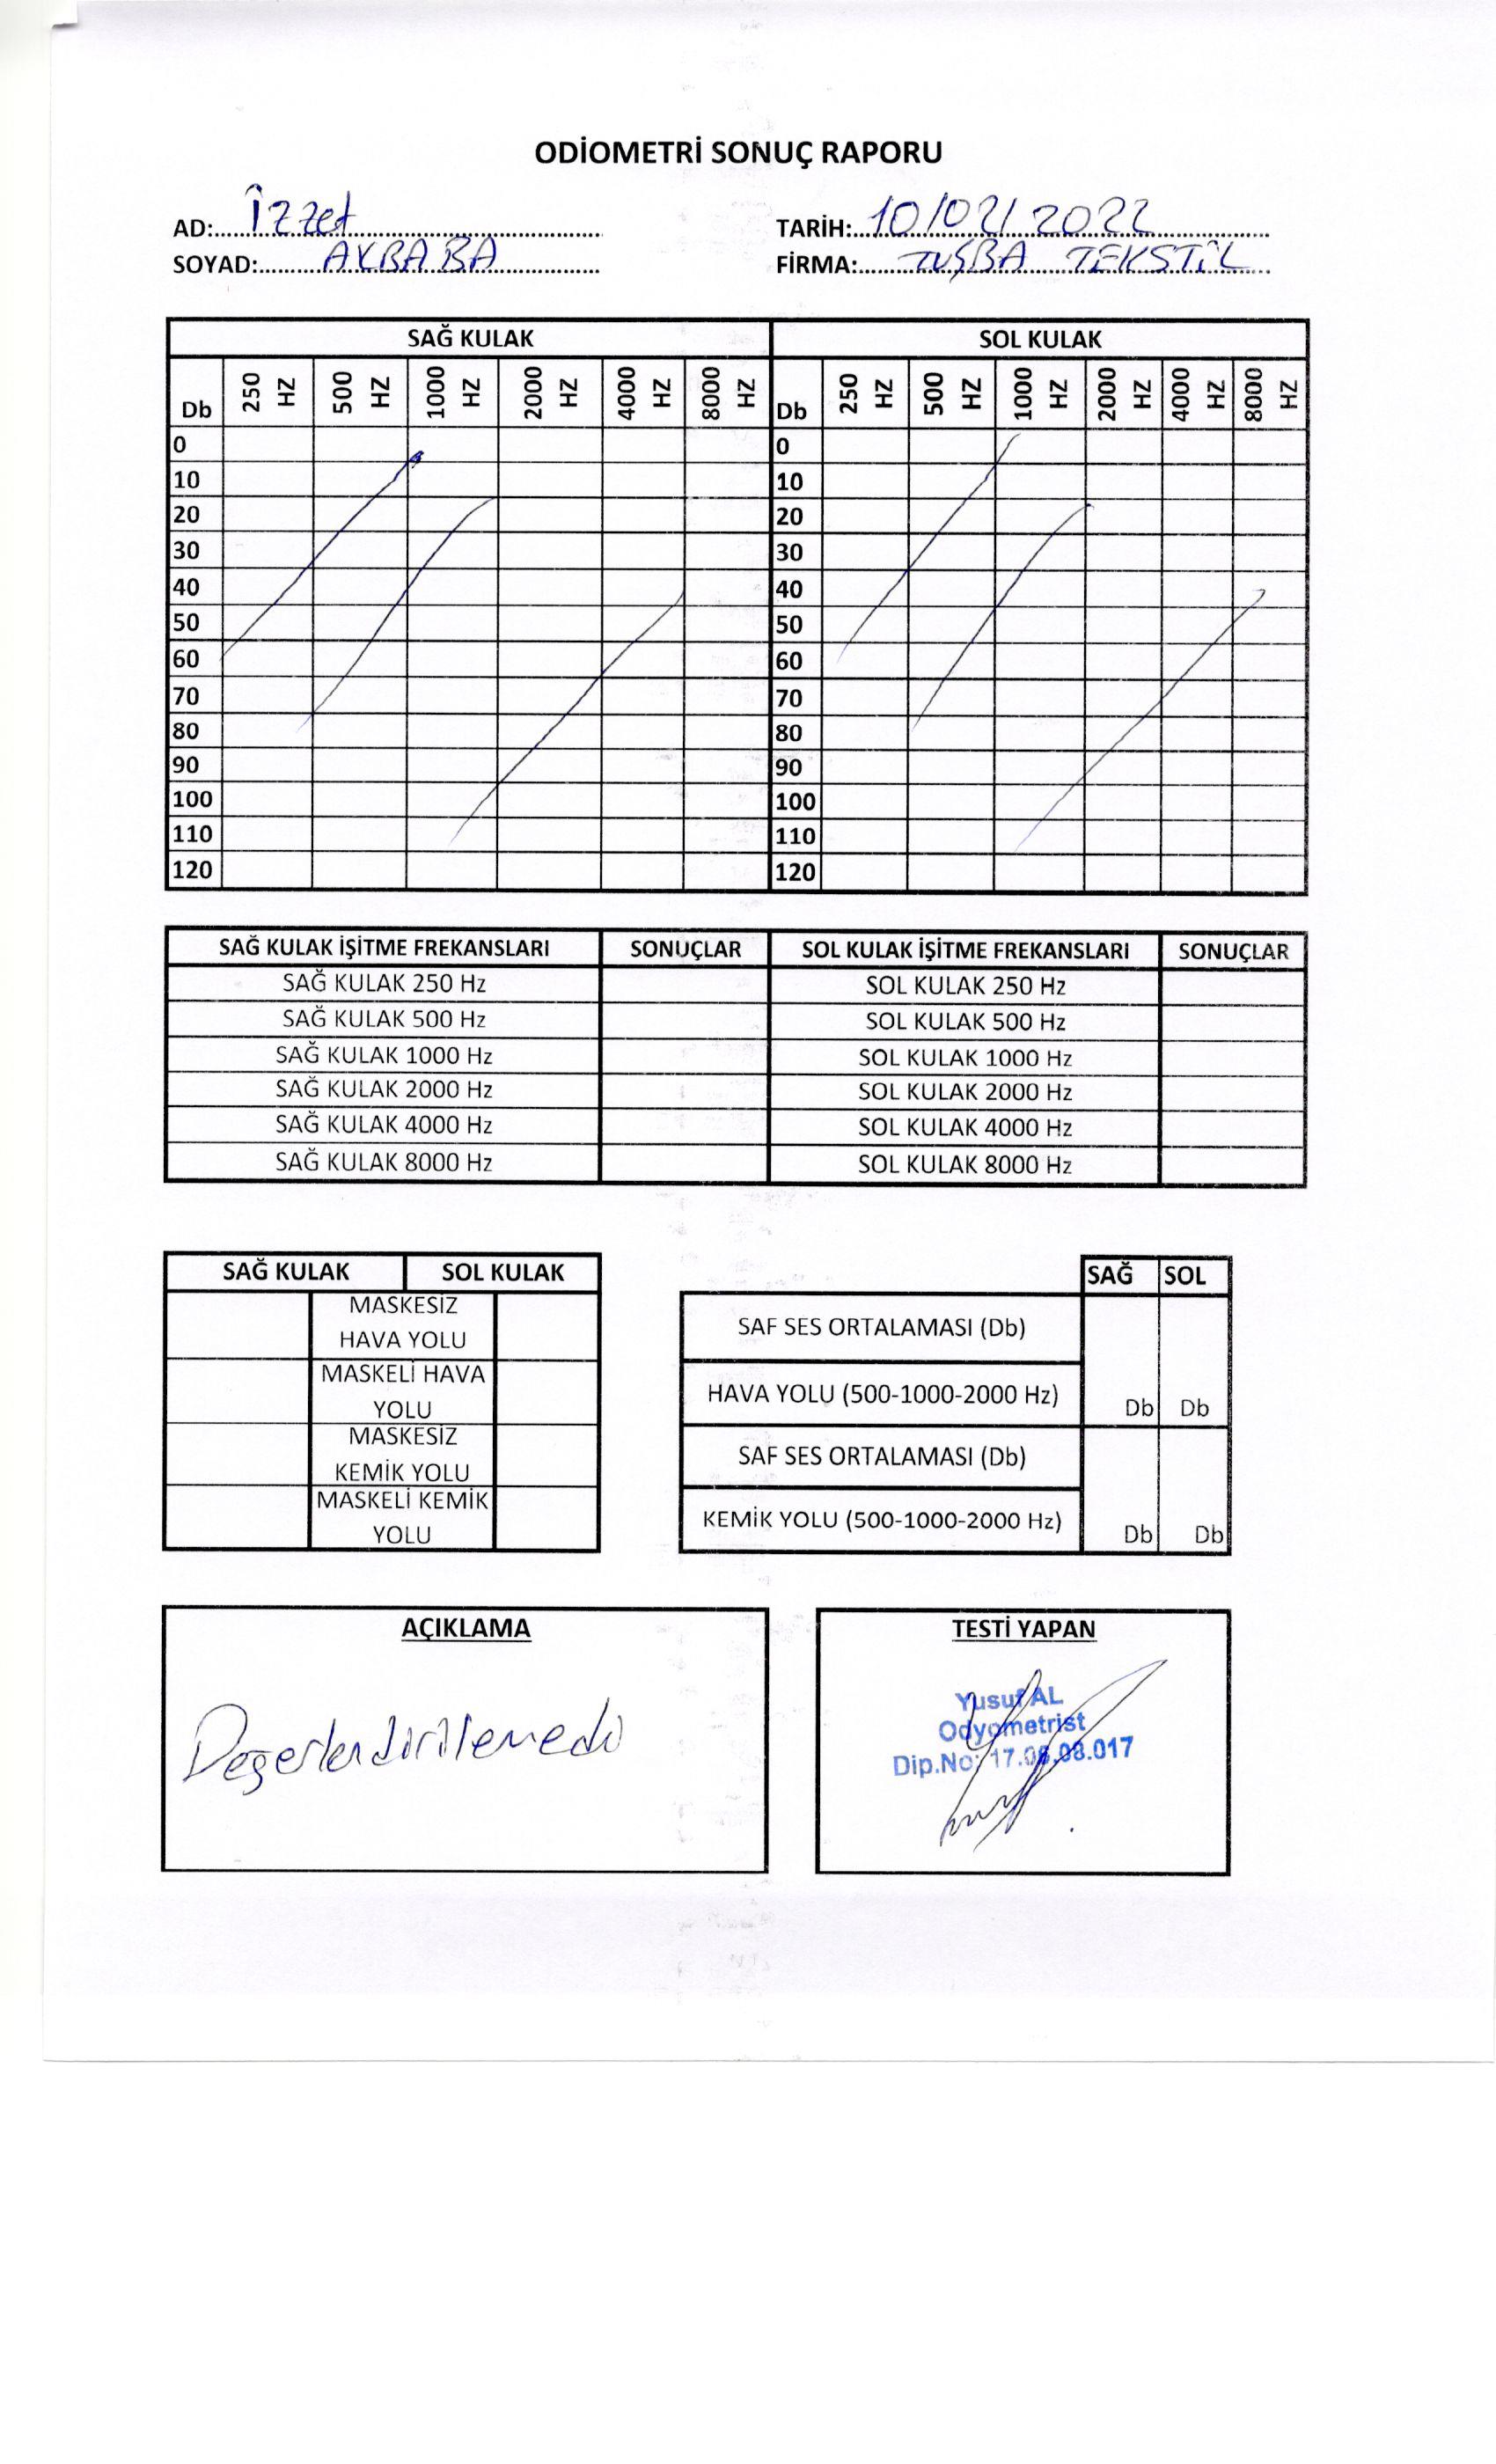 ODİOMETRİ SONUÇ RAPORU
AD: İzzet
TARİH: 10/02/2022
SOYAD: AKBABA
FİRMA: TUŞBA TEKSTİL
SAĞ KULAK SOL KULAK
Db 250 HZ 500 HZ 1000 HZ 2000 HZ 4000 HZ 8000 HZ Db 250 HZ 500 HZ 1000 HZ 2000 HZ 4000 HZ 8000 HZ
0 0
10 10
20 20
30 30
40 40
50 50
60 60
70 70
80 80
90 90
100 100
110 110
120 120
SAĞ KULAK İŞİTME FREKANSLARI SONUÇLAR SOL KULAK İŞİTME FREKANSLARI SONUÇLAR
SAĞ KULAK 250 Hz SOL KULAK 250 Hz
SAĞ KULAK 500 Hz SOL KULAK 500 Hz
SAĞ KULAK 1000 Hz SOL KULAK 1000 Hz
SAĞ KULAK 2000 Hz SOL KULAK 2000 Hz
SAĞ KULAK 4000 Hz SOL KULAK 4000 Hz
SAĞ KULAK 8000 Hz SOL KULAK 8000 Hz
SAĞ KULAK SOL KULAK
MASKESİZ
HAVA YOLU
MASKELİ HAVA
YOLU
MASKESİZ
KEMİK YOLU
MASKELİ KEMİK
YOLU
SAĞ SOL
SAF SES ORTALAMASI (Db)
HAVA YOLU (500-1000-2000 Hz) Db Db
SAF SES ORTALAMASI (Db)
KEMİK YOLU (500-1000-2000 Hz) Db Db
AÇIKLAMA
Değerlendirilemedi
TESTİ YAPAN
Yusuf AL
Odyometrist
Dip.No: 17.06.08.017